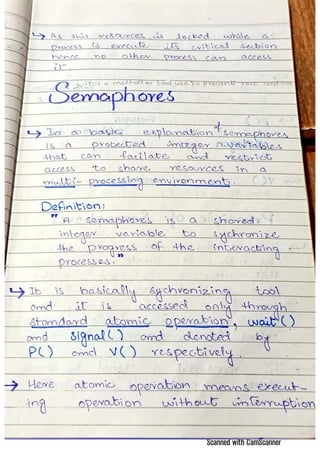 As this resources is locked while a
process is execute its critical section
hence no other process can access
it
Semaphores
basic explanation of semaphores
is a protected integer variables
that can facilate and restrict
access to share resources in a
multi-processing environment.
Definition:
"A semaphores is a shared
integer variable to sychronize
the progress of the interacting
processes."
It is basically sychronizing tool
and it is accessed only through
standard atomic operation, wait()
and signal() and denoted by
P() and V() respectively.
Here atomic operation means execut-
ing operation without interruption
Scanned with CamScanner